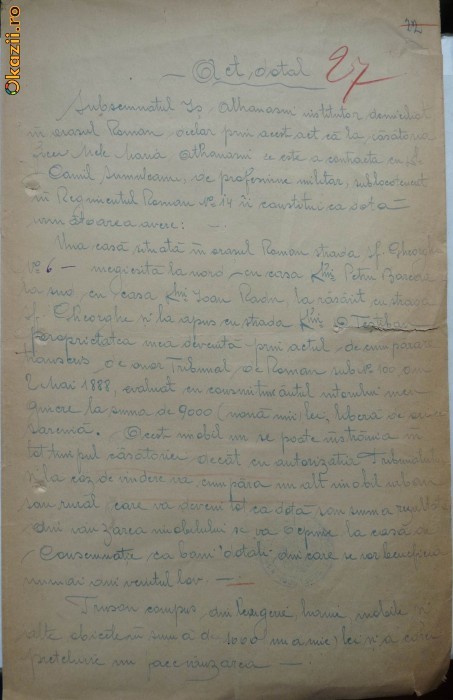 Okazii.ro
22
27
— Act dotal
Subsemnatul Is. Athanasiu institutor domiciliat
în orasul Roman, declar prin acest act că la căsătoria
ficei Mele Maria Athanasiu ce este a contracta cu dl
Camil, de profesiune militar, sublocotenent
în Regimentul Roman No 14 îi constitui ca dotă
următoarea avere: —
Una casă situată în orasul Roman strada Sf. Gheorghe
No 6 — megiesită la nord cu casa Petru
la sud cu casa Ioan, la răsărit cu strada
Sf. Gheorghe si la apus cu strada
Proprietatea mea devenită prin actul de cumpărare
transcris de onor Tribunal de Roman sub No 100, din
2 Mai 1888, evaluat cu consimtimântul viitorului meu
ginere la suma de 9000 (nouă mii) lei, liberă de orice
sarcină. Acest imobil nu se poate instrăina în
tot timpul căsătoriei decât cu autorizatia Tribunalului
si la caz de vindere va cumpăra un alt imobil urban
sau rural care va deveni tot ca dotă sau suma
din vanzarea imobilului se va depune la casa de
Consemnatie ca bani dotali din care se vor beneficia
numai din venitul lor. —
Trusou compus din lengerie, haine, mobile si
alte obiecte în sumă de 1000 (una mie) lei si a căror
preteluire nu face vânzarea —